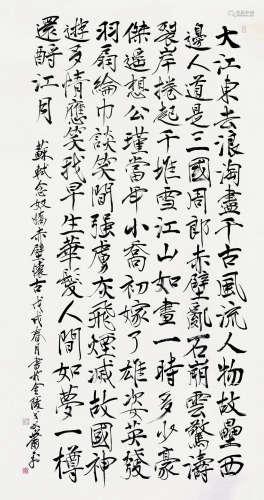 大江東去浪淘盡千古風流人物故壘西
邊人道是三國周郎赤壁亂石崩雲驚濤
裂岸捲起千堆雪江山如畫一時多少豪
傑遙想公瑾當年小喬初嫁了雄姿英發
羽扇綸巾談笑間強虜灰飛煙滅故國神
遊多情應笑我早生華髮人間如夢一樽
還酹江月
蘇軾念奴嬌赤壁懷古戊戌春月書於金陵蕭平